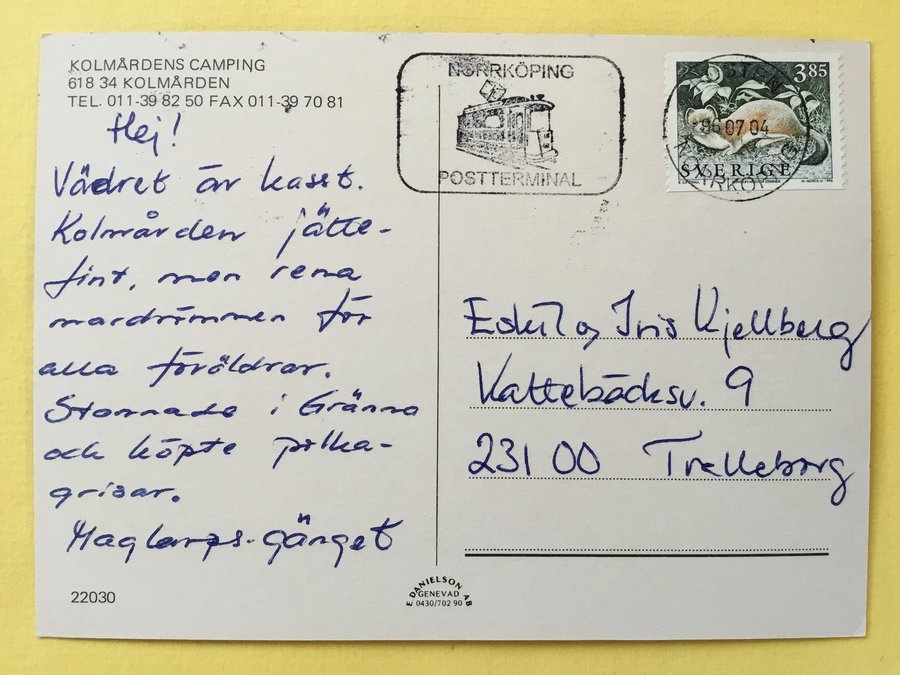 KOLMÅRDENS CAMPING
618 34 KOLMÅRDEN
TEL. 011-39 82 50 FAX 011-39 70 81
Hej!
Vädret är kasst.
Kolmården jätte-
fint, men rena
mardrömmen för
alla föräldrar.
Stannade i Gränna
och köpte polka-
grisar.
Maglarps-gänget
22030
NORRKÖPING
POSTTERMINAL
3.85
96 07 04
SVERIGE
Eskil o, Iris Kjellberg
Kattebäcksv. 9
231 00 Trelleborg
E DANIELSON AB
GENEVAD
0430/702 90